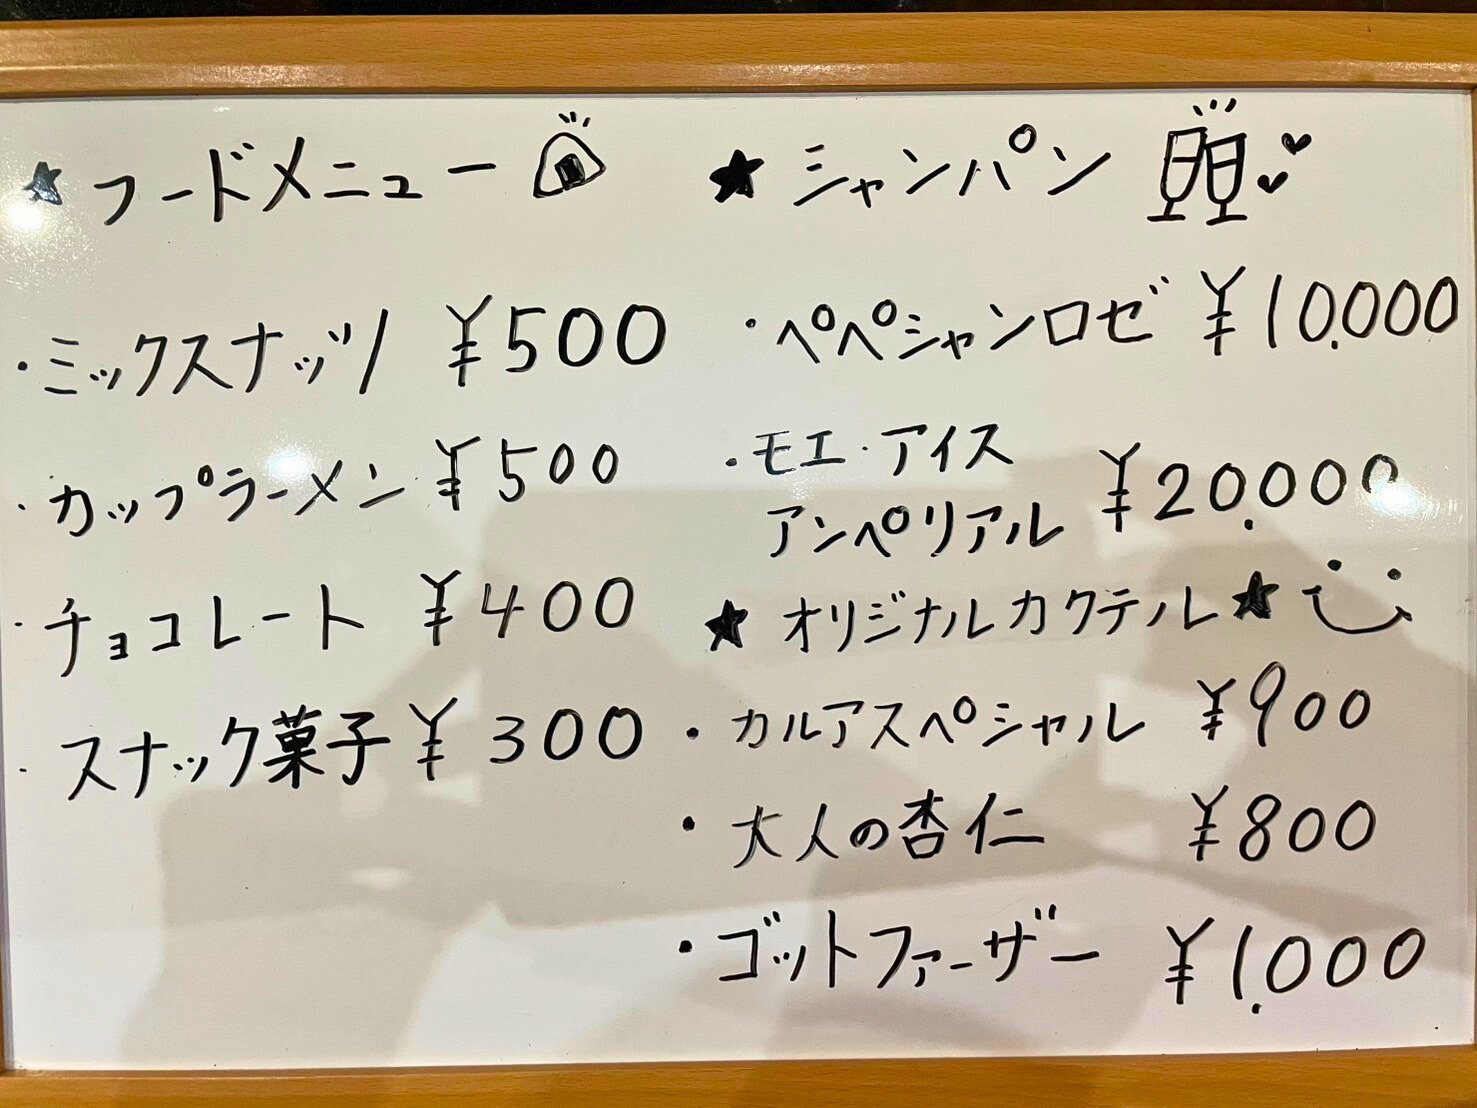 ★フードメニュー
・ミックスナッツ ¥500
・カップラーメン ¥500
・チョコレート ¥400
・スナック菓子 ¥300
★シャンパン
・ペペシャンロゼ ¥10.000
・モエ・アイス
アンペリアル ¥20.000
★オリジナルカクテル★
・カルアスペシャル ¥900
・大人の杏仁 ¥800
・ゴットファーザー ¥1.000